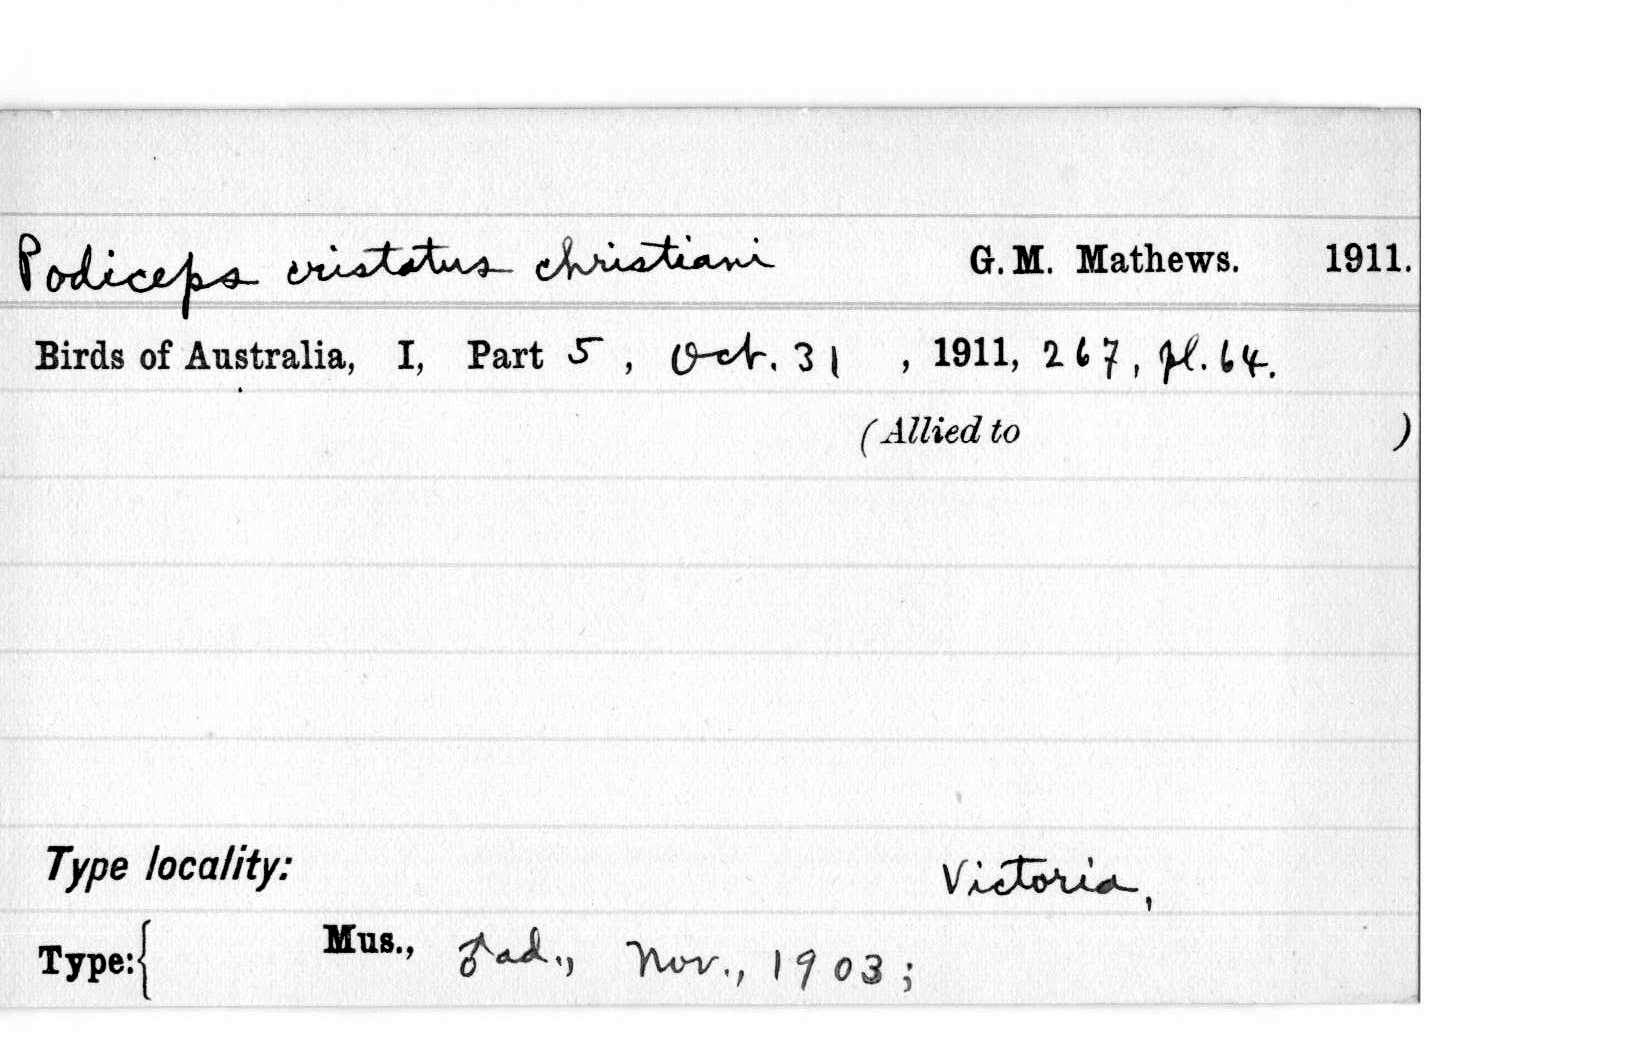 Podiceps cristatus christiani G. M. Mathews. 1911.
Birds of Australia, I, Part 5, Oct. 31, 1911, 267, pl. 64.
(Allied to )
Type locality: Victoria,
Type:{ Mus., ♂ ad., Nov., 1903;